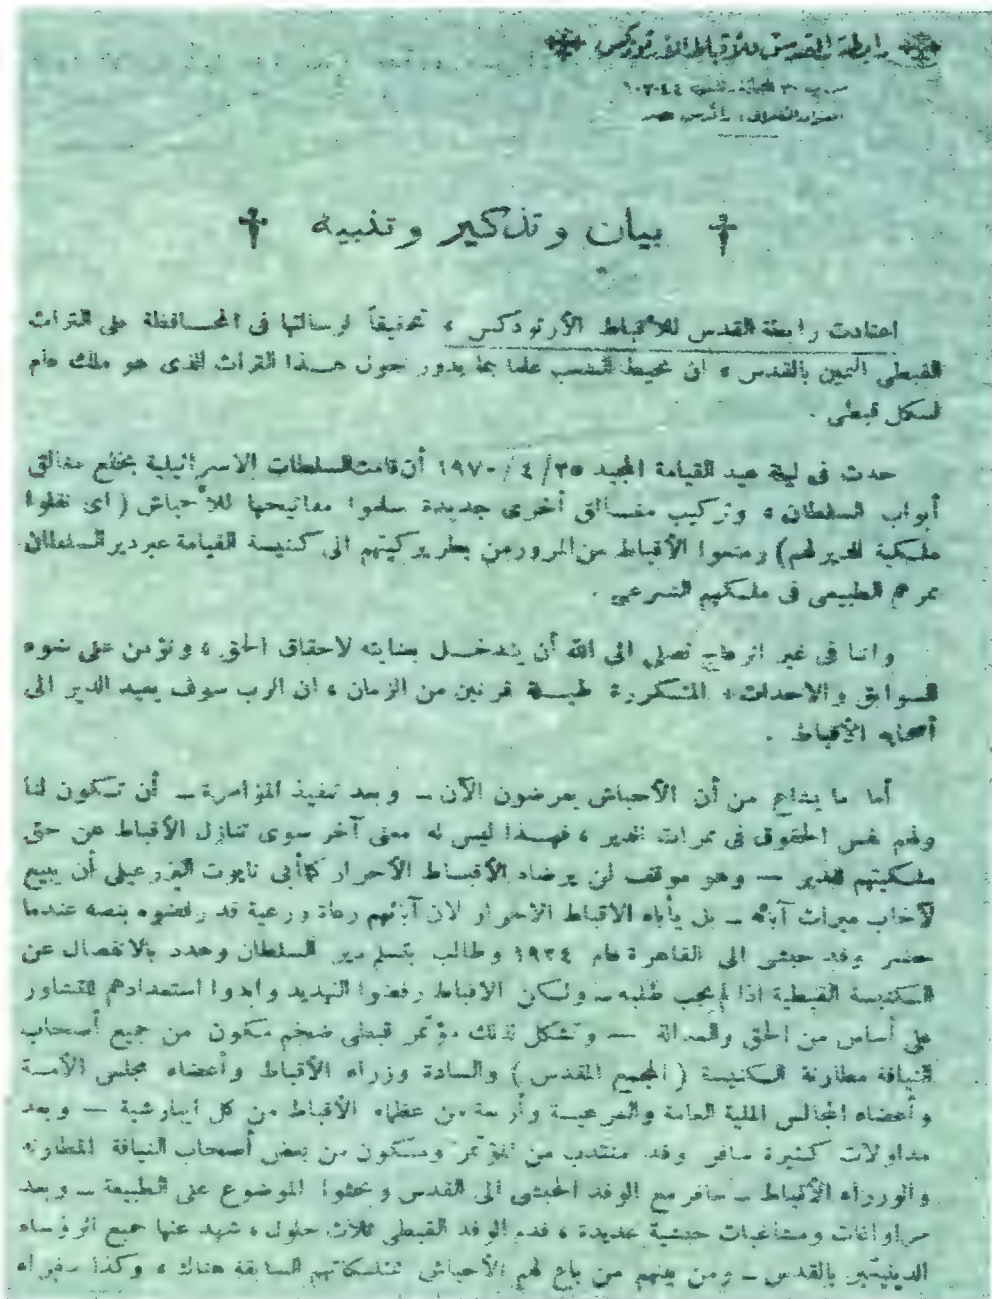 رابطة القدس للأقباط الأرثوذكس
بيان وتذكير وتنبيه
اعتادت رابطة القدس للأقباط الأرثوذكس ، تحقيقاً لرسالتها فى المحـافظة على التراث
القبطى الثمين بالقدس ، ان تحيط الشعب علما بما يدور حول هـذا التراث الذى هو ملك عام
لسكل قبطى .
حدث فى ليلة عيد القيامة المجيد ٢٥/٤/١٩٧٠ أن قامت السلطات الاسرائيلية بخلع مغالق
أبواب السلطان ، وتركيب مغـالق أخرى جديدة سلموا مفاتيحها للأحباش ( اى نقلوا
ملـكية الدير لهم ) ومنعوا الأقباط من المرور من بطريركيتهم الى كنيسة القيامة عبر دير السلطان
ممرهم الطبيعى فى ملـكهم الشرعى .
واننا فى غير انزعاج نصلى الى الله أن يتدخـل بعنايته لاحقاق الحق ، ونؤمن على ضوء
السوابق والاحداث المتـكررة طيـلة قرنين من الزمان ، ان الرب سوف يعيد الدير الى
أصحابه الأقباط .
أما ما يشاع من أن الأحباش يعرضون الآن ــ وبعد تنفيذ المؤامرة ــ أن تـكون لنا
ولهم نفس الحقوق فى ممرات الدير ، فهـذا ليس له معنى آخر سوى تنازل الأقباط عن حق
ملـكيتهم للدير ــ وهو موقف لن يرضاه الأقبـاط الأحرار كما أبى نابوت اليزرعيلى أن يبيع
لآخاب ميراث آبائه ــ بل يأباه الاقباط الاحرار لان آبائهم رعاة ورعية قد رفضوه بنصه عندما
حضر وفد حبشى الى القاهرة عام ١٩٢٤ وطالب بتسلم دير السلطان وهدد بالانفصال عن
الـكنيسة القبطية اذا لم يجب طلبه ــ ولـكن الاقباط رفضوا التهديد وابدوا استعدادهم للتشاور
على أساس من الحق والعدالة ــ وتشكل لذلك مؤتمر قبطى ضخم مـكون من جميع أصحاب
النيافة مطارنة الـكنيسة ( المجمع المقدس ) والسادة وزراء الأقباط وأعضاء مجلس الأمـة
وأعضاء المجالس الملية العامة والفرعيـة وأربعة من عظماء الأقباط من كل ايبارشية ــ وبعد
مداولات كـثيرة سافر وفد منتدب من المؤتمر ومتـكون من بعض أصحاب النيافة المطارنة
والوزراء الأقباط ــ سافر مع الوفد الحبشى الى القدس وبحثوا الموضوع على الطبيعة ــ وبعد
مراوغات ومشاغبات حبشية عديدة ، قدم الوفد القبطى ثلاث حلول ، شهد عنها جميع الرؤساء
الدينيين بالقدس ــ ومن بينهم من باع لهم الأحباش ممتلـكاتهم السابقة هناك ، وكذا سفراء